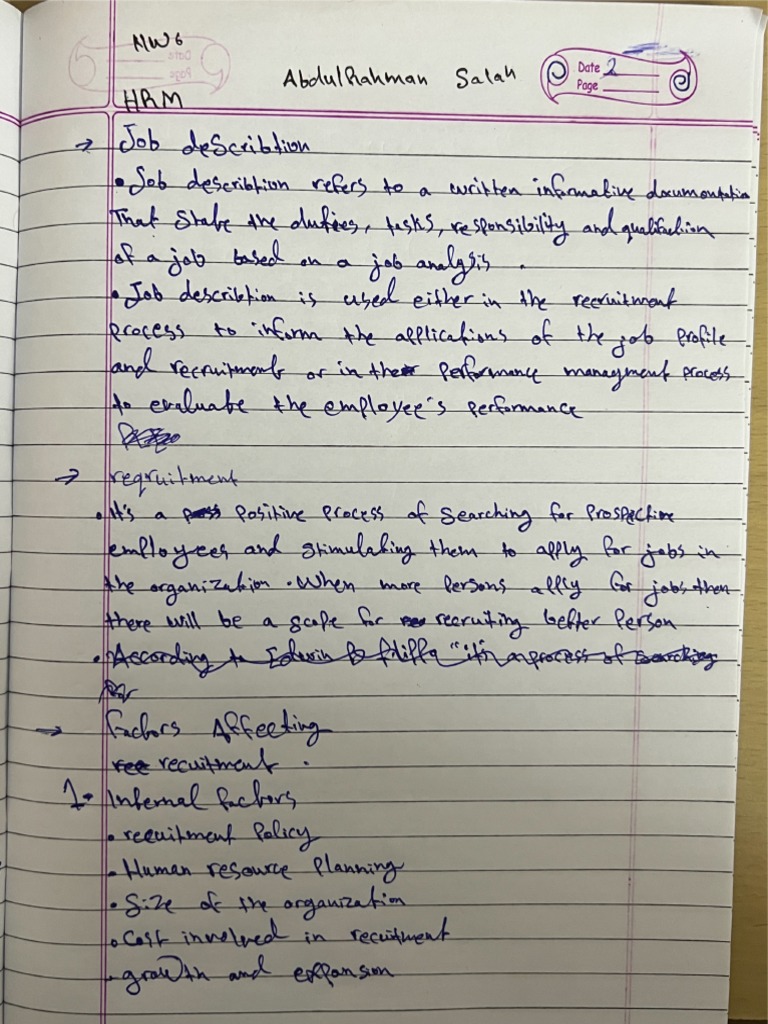 NW6
AbdulRahman Salah
Date 2
Page
HRM
→ Job describtion
• Job describtion refers to a written informative documentation
That state the duties, tasks, responsibility and qualifiction
of a job based on a job analysis.
• Job describtion is used either in the recruitment
process to inform the applications of the job profile
and recruitment or in the performance managment process
to evaluate the employee's performance
→ reqruitment
• It's a positive process of searching for prospective
employees and stimulating them to apply for jobs in
the organization. When more persons apply for jobs then
there will be a scope for recruiting better person
• According to Edwin B flippo "it's a process of searching
→ factors Affecting
recuitment.
1- Internal factors
• recuitment Policy
• Human resource Planning
• Size of the organization
• Cost involved in recuitment
• growth and expansion